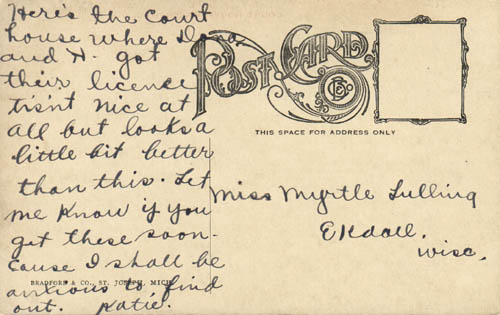 Here's the court
house where Dora
and H. got
their licence
tisnt nice at
all but looks a
little bit better
than this. Let
me know if you
get these soon.
cause I shall be
anxious to find
out. Katie.
POST CARD
THIS SPACE FOR ADDRESS ONLY
Miss Myrtle Lulling
Ekdall,
Wisc.
BRADFORD & CO., ST. JOSEPH, MICH.